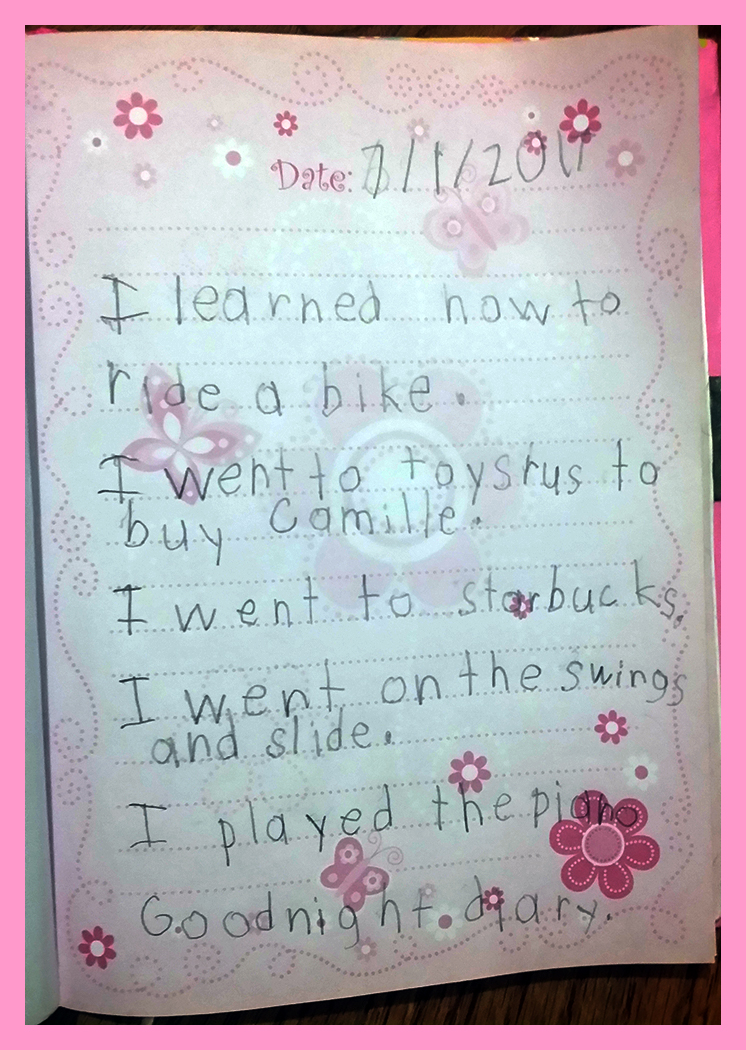 Date: 7/1/2011
I learned how to
ride a bike.
I went to toysrus to
buy Camille.
I went to starbucks.
I went on the swings
and slide.
I played the piano
Goodnight diary.